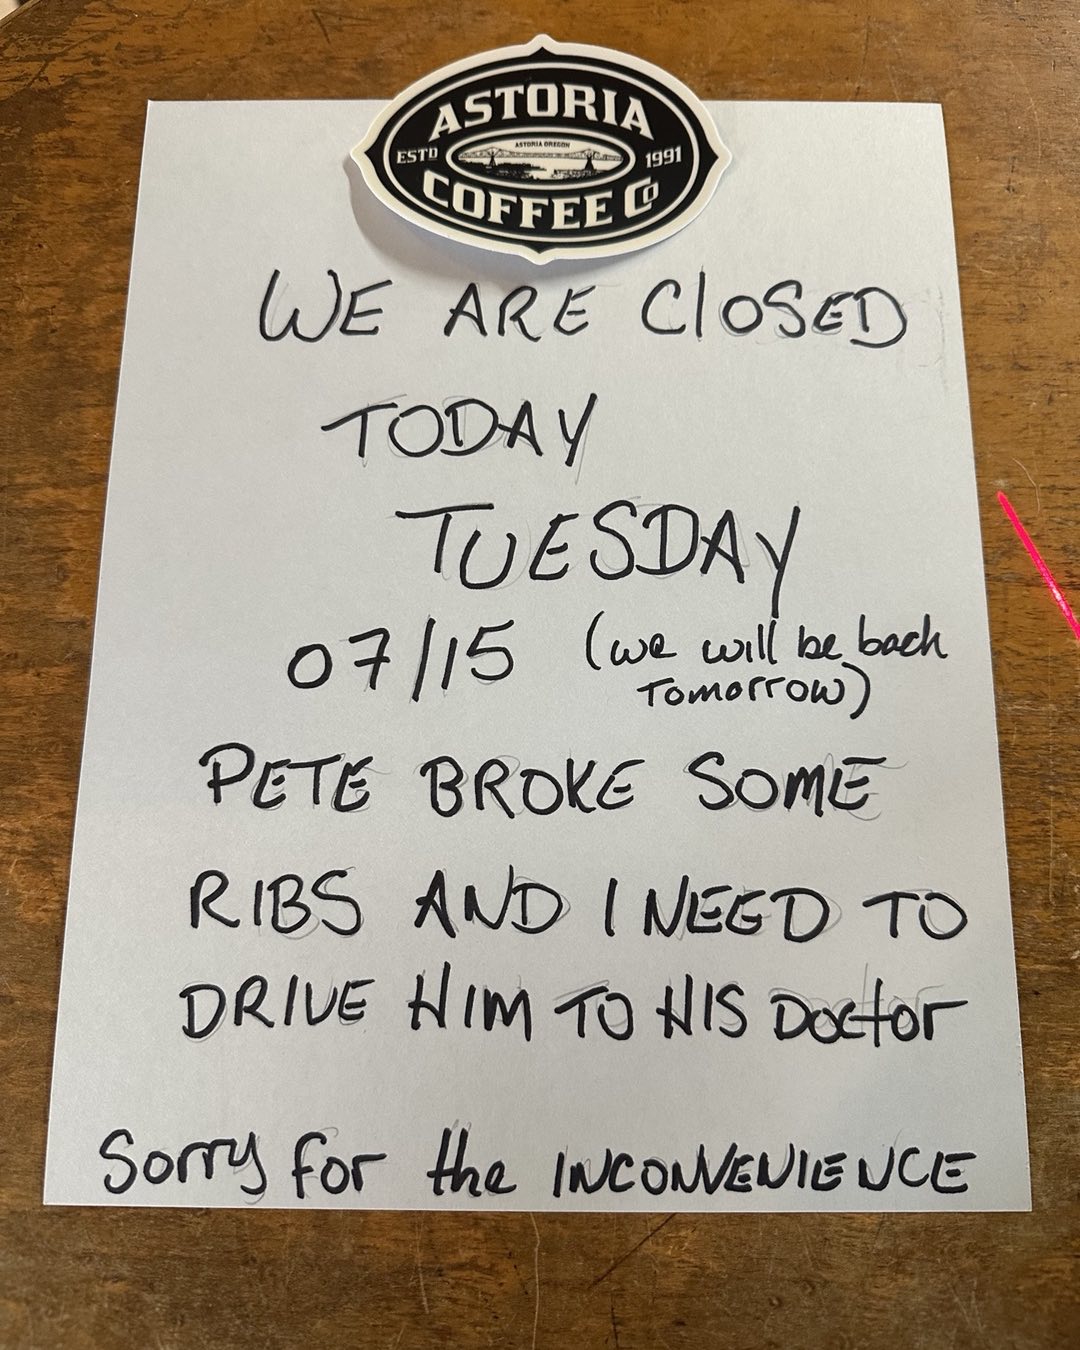 ASTORIA
ESTD
ASTORIA OREGON
1991
COFFEE Co
WE ARE ClOSED
TODAY
TUESDAY
07/15 (we will be back
Tomorrow)
PETE BROKE SOME
RIBS AND I NEED TO
DRIVE HIM TO HIS Doctor
Sorry for the INCONVENIENCE